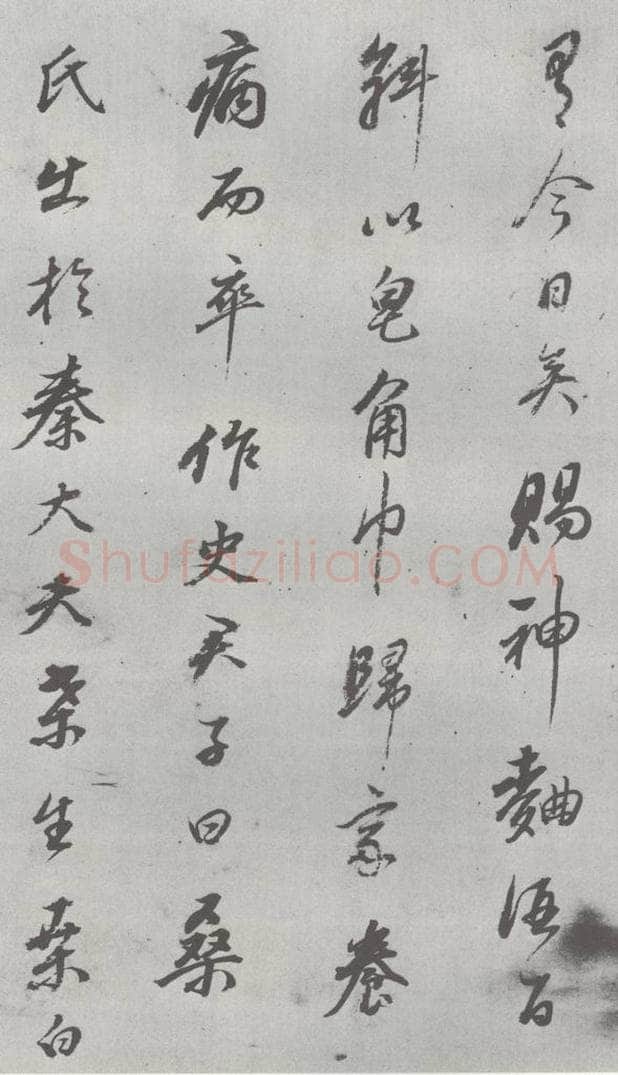 有今日矣賜神麯伍百
斛以皂角巾歸家養
病而卒作史君子曰桑
氏出於秦大夫葉生葉白
Shufaziliao.COM